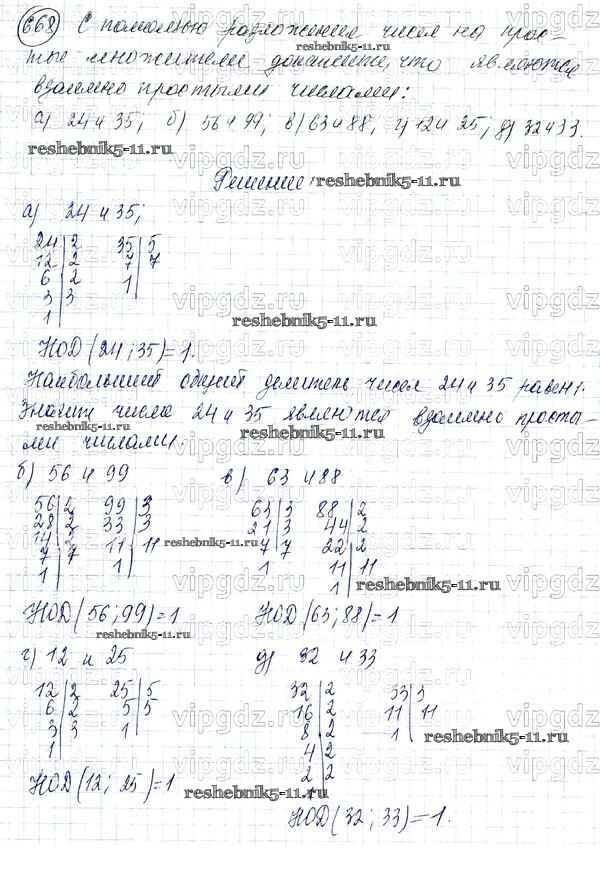 668 С помощью разложения чисел на прос-
тые множители докажите, что являются
взаимно простыми числами:
а) 24 и 35; б) 56 и 99; в) 63 и 88; г) 12 и 25; д) 32 и 33.
reshebnik5-11.ru
Решение:
reshebnik5-11.ru
а) 24 и 35;
24 | 2 35 | 5
12 | 2 7 | 7
6 | 2 1
3 | 3
1
reshebnik5-11.ru
НОД (24; 35) = 1.
Наибольший общий делитель чисел 24 и 35 равен 1.
Значит числа 24 и 35 являются взаимно просты-
reshebnik5-11.ru reshebnik5-11.ru
ми числами.
б) 56 и 99 в) 63 и 88
56 | 2 99 | 3 63 | 3 88 | 2
28 | 2 33 | 3 21 | 3 44 | 2
14 | 2 11 | 11 7 | 7 22 | 2
7 | 7 1 1 11 | 11
1 1
reshebnik5-11.ru
reshebnik5-11.ru
НОД (56; 99) = 1 НОД (63; 88) = 1
reshebnik5-11.ru
г) 12 и 25 д) 32 и 33
12 | 2 25 | 5 32 | 2 33 | 3
6 | 2 5 | 5 16 | 2 11 | 11
3 | 3 1 8 | 2 1
1 4 | 2
2 | 2
1
reshebnik5-11.ru
НОД (12; 25) = 1
reshebnik5-11.ru
НОД (32; 33) = 1.
vipgdz.ru